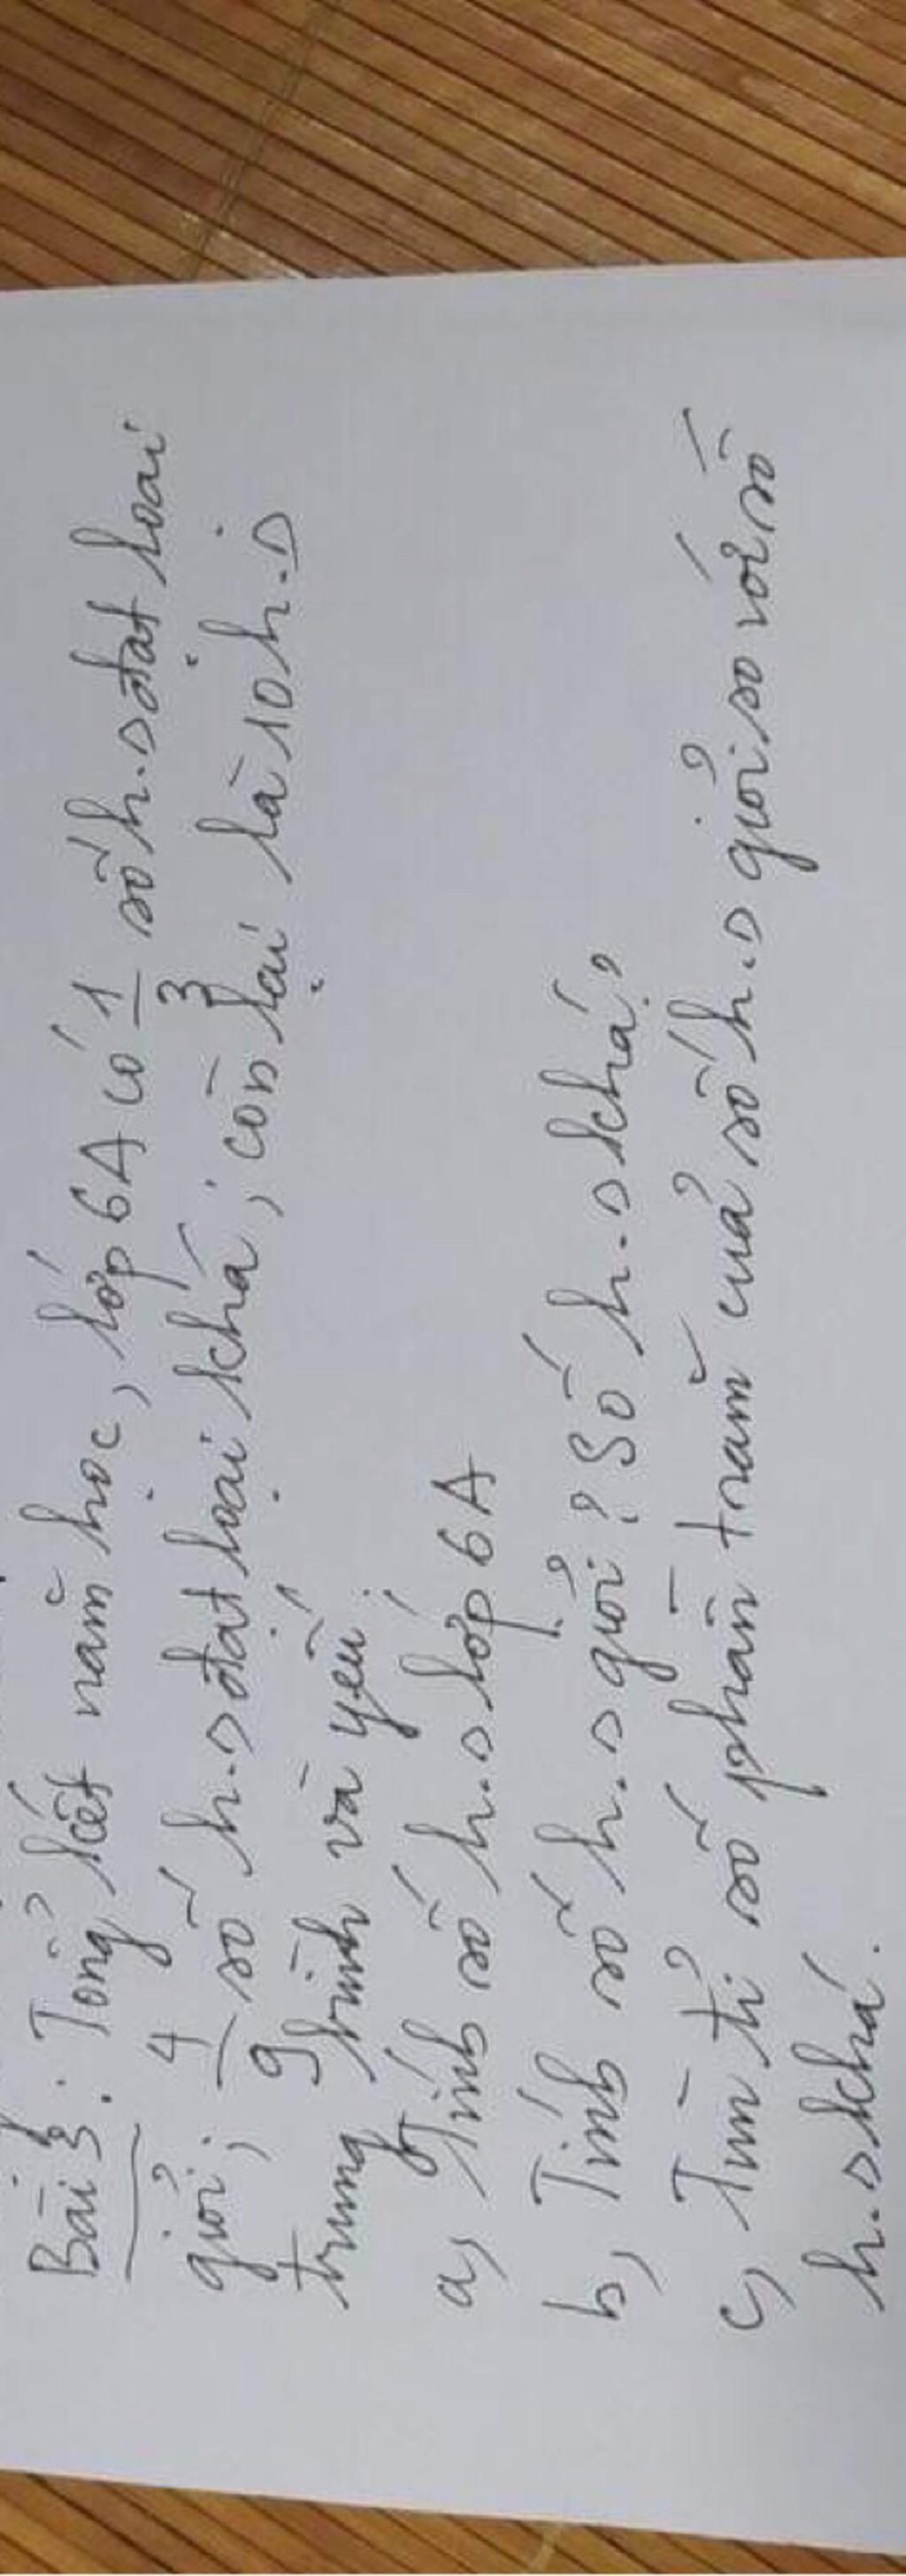 Bài 3: Tổng kết năm học, lớp 6A có 1/3 số h.s đạt loại
giỏi; 4/9 số h.s đạt loại khá; còn lại là 10 h.s
trung bình và yếu.
a, Tính số h.s lớp 6A
b, Tính số h.s giỏi? Số h.s khá?
c, Tìm tỉ số phần trăm của số h.s giỏi so với số
h.s khá.